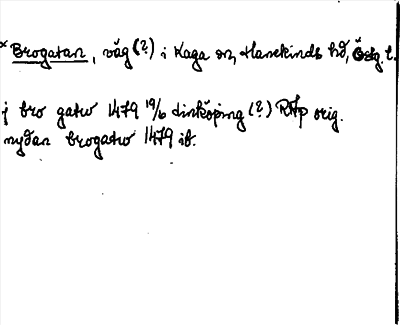 × Brogatan, väg (?) i Kaga sn, Hanekinds hd, Östg. l.
j bro gatw 1479 19/6 Linköping (?) RAp orig.
nyðan brogatw 1479 ib.